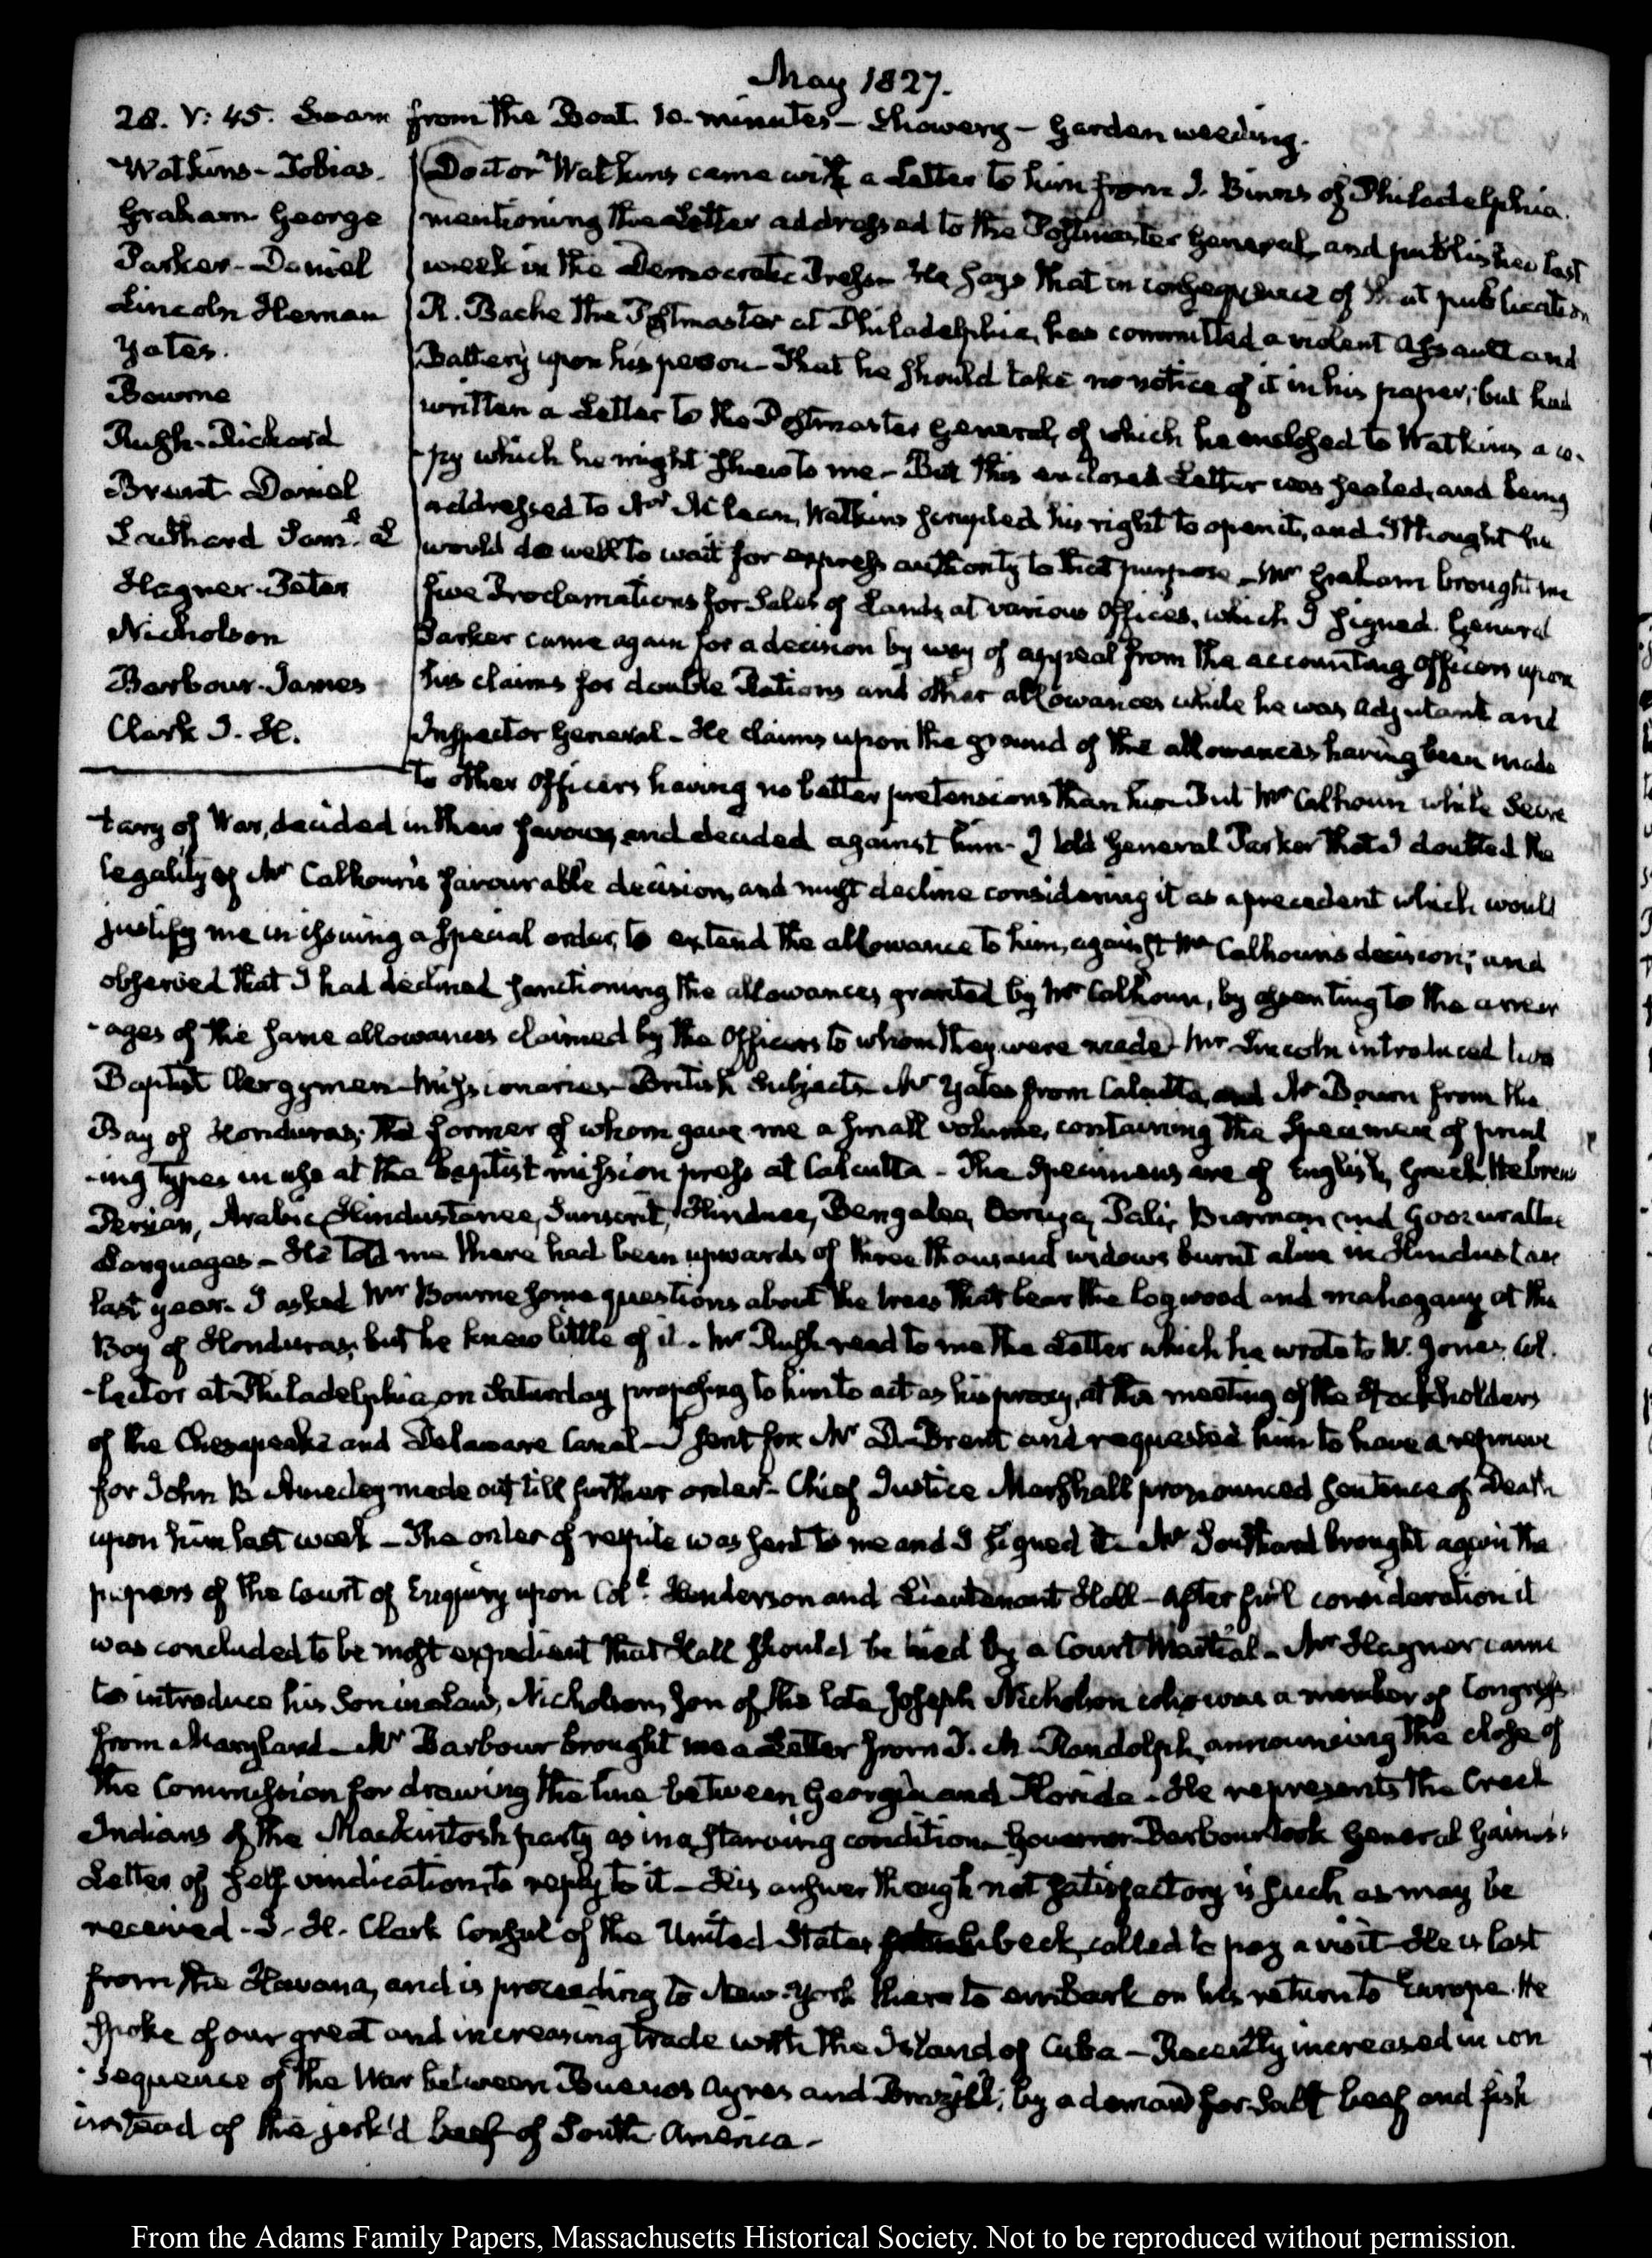 May 1827.
28. V: 45. Swam from the Boat 10. minutes – Showery – Garden weeding.
Watkins – Tobias.
Graham George
Parker – Daniel
Lincoln Heman
Yates.
Bourne
Rush – Richard
Brent Daniel
Southard Saml. L
Hagner – Peter
Nicholson
Barbour – James
Clark J. H.
Doctor Watkins came with a Letter to him from J. Binns of Philadelphia.
mentioning the Letter addressed to the Postmaster General, and published last
week in the Democratic Press – He says that in consequence of that publication
R. Bache the Postmaster at Philadelphia, has committed a violent assault and
Battery upon his person – That he should take no notice of it in his paper; but had
written a Letter to the Postmaster General, of which he enclosed to Watkins a co-
-py which he might shew to me – But this enclosed Letter was sealed, and being
addressed to Mr McLean, Watkins scrupled his right to open it, and I thought he
would do well to wait for express authority to that purpose – Mr Graham brought me
five Proclamations for Sales of Lands, at various Offices, which I signed. General
Parker came again for a decision by way of appeal from the accounting Officers upon
his claims for double Rations and other allowances while he was Adjutant and
Inspector General – He claims upon the ground of the allowances having been made
to other Officers having no better pretensions than his – But Mr Calhoun while Secre
tary of War, decided in their favour, and decided against him – I told General Parker that I doubted the
legality of Mr Calhoun's favourable decision, and must decline considering it as a precedent which would
justify me in issuing a special order, to extend the allowance to him, against Mr Calhoun's decision; and
observed that I had declined sanctioning the allowances granted by Mr Calhoun, by assenting to the arrear
-ages of the same allowances claimed by the Officers to whom they were made) Mr Lincoln introduced two
Baptist Clergymen – Missionaries – British Subjects – Mr Yates from Calcutta, and Mr Bourn from the
Bay of Honduras; the former of whom gave me a small volume, containing the Specimens of print
-ing types in use at the Baptist mission press at Calcutta – The Specimens are of English, Greek, Hebrew
Persian, Arabic, Hindustanee, Sunscrit, Hinduee, Bengalee, Ooruya, Pali, Burman and Goozurattee
Languages – He told me there had been upwards of three thousand widows burnt alive in Hindustan
last year. I asked Mr Bourne some questions about the trees that bear the logwood and mahogany at the
Bay of Honduras, but he knew little of it. Mr Rush read to me the Letter which he wrote to W. Jones, Col.
-lector at Philadelphia, on Saturday proposing to him to act as his proxy, at the meeting of the Stockholders
of the Chesapeake and Delaware Canal – I sent for Mr D. Brent and requested him to have a reprieve
for John B. Amedey made out till further order – Chief Justice Marshall pronounced sentence of Death
upon him last week – The order of respite was sent to me and I signed it – Mr Southard brought again the
papers of the Court of Enquiry upon Coll. Henderson and Lieutenant Hall – after full consideration it
was concluded to be most expedient that Hall should be tried by a Court Martial – Mr Hagner came
to introduce his Son in Law, Nicholson, son of the late Joseph Nicholson who was a member of Congress
from Maryland – Mr Barbour brought me a Letter from T. M. Randolph, announcing the close of
the Commission for drawing the line between Georgia and Florida – He represents the Creek
Indians of the Mackintosh party as in a starving condition – Governor Barbour took General Gaines's
Letter of self vindication, to reply to it – His answer though not satisfactory is such as may be
received – J. H. Clark Consul of the United States beck, called to pay a visit – He is last
from the Havana, and is proceeding to New-York there to embark on his return to Europe. He
spoke of our great and increasing trade with the Island of Cuba – Recently increased in con
-sequence of the War between Buenos Ayres and Brazil; by a demand for Salt beef and fish
instead of the jerk'd beef of South America –
From the Adams Family Papers, Massachusetts Historical Society. Not to be reproduced without permission.